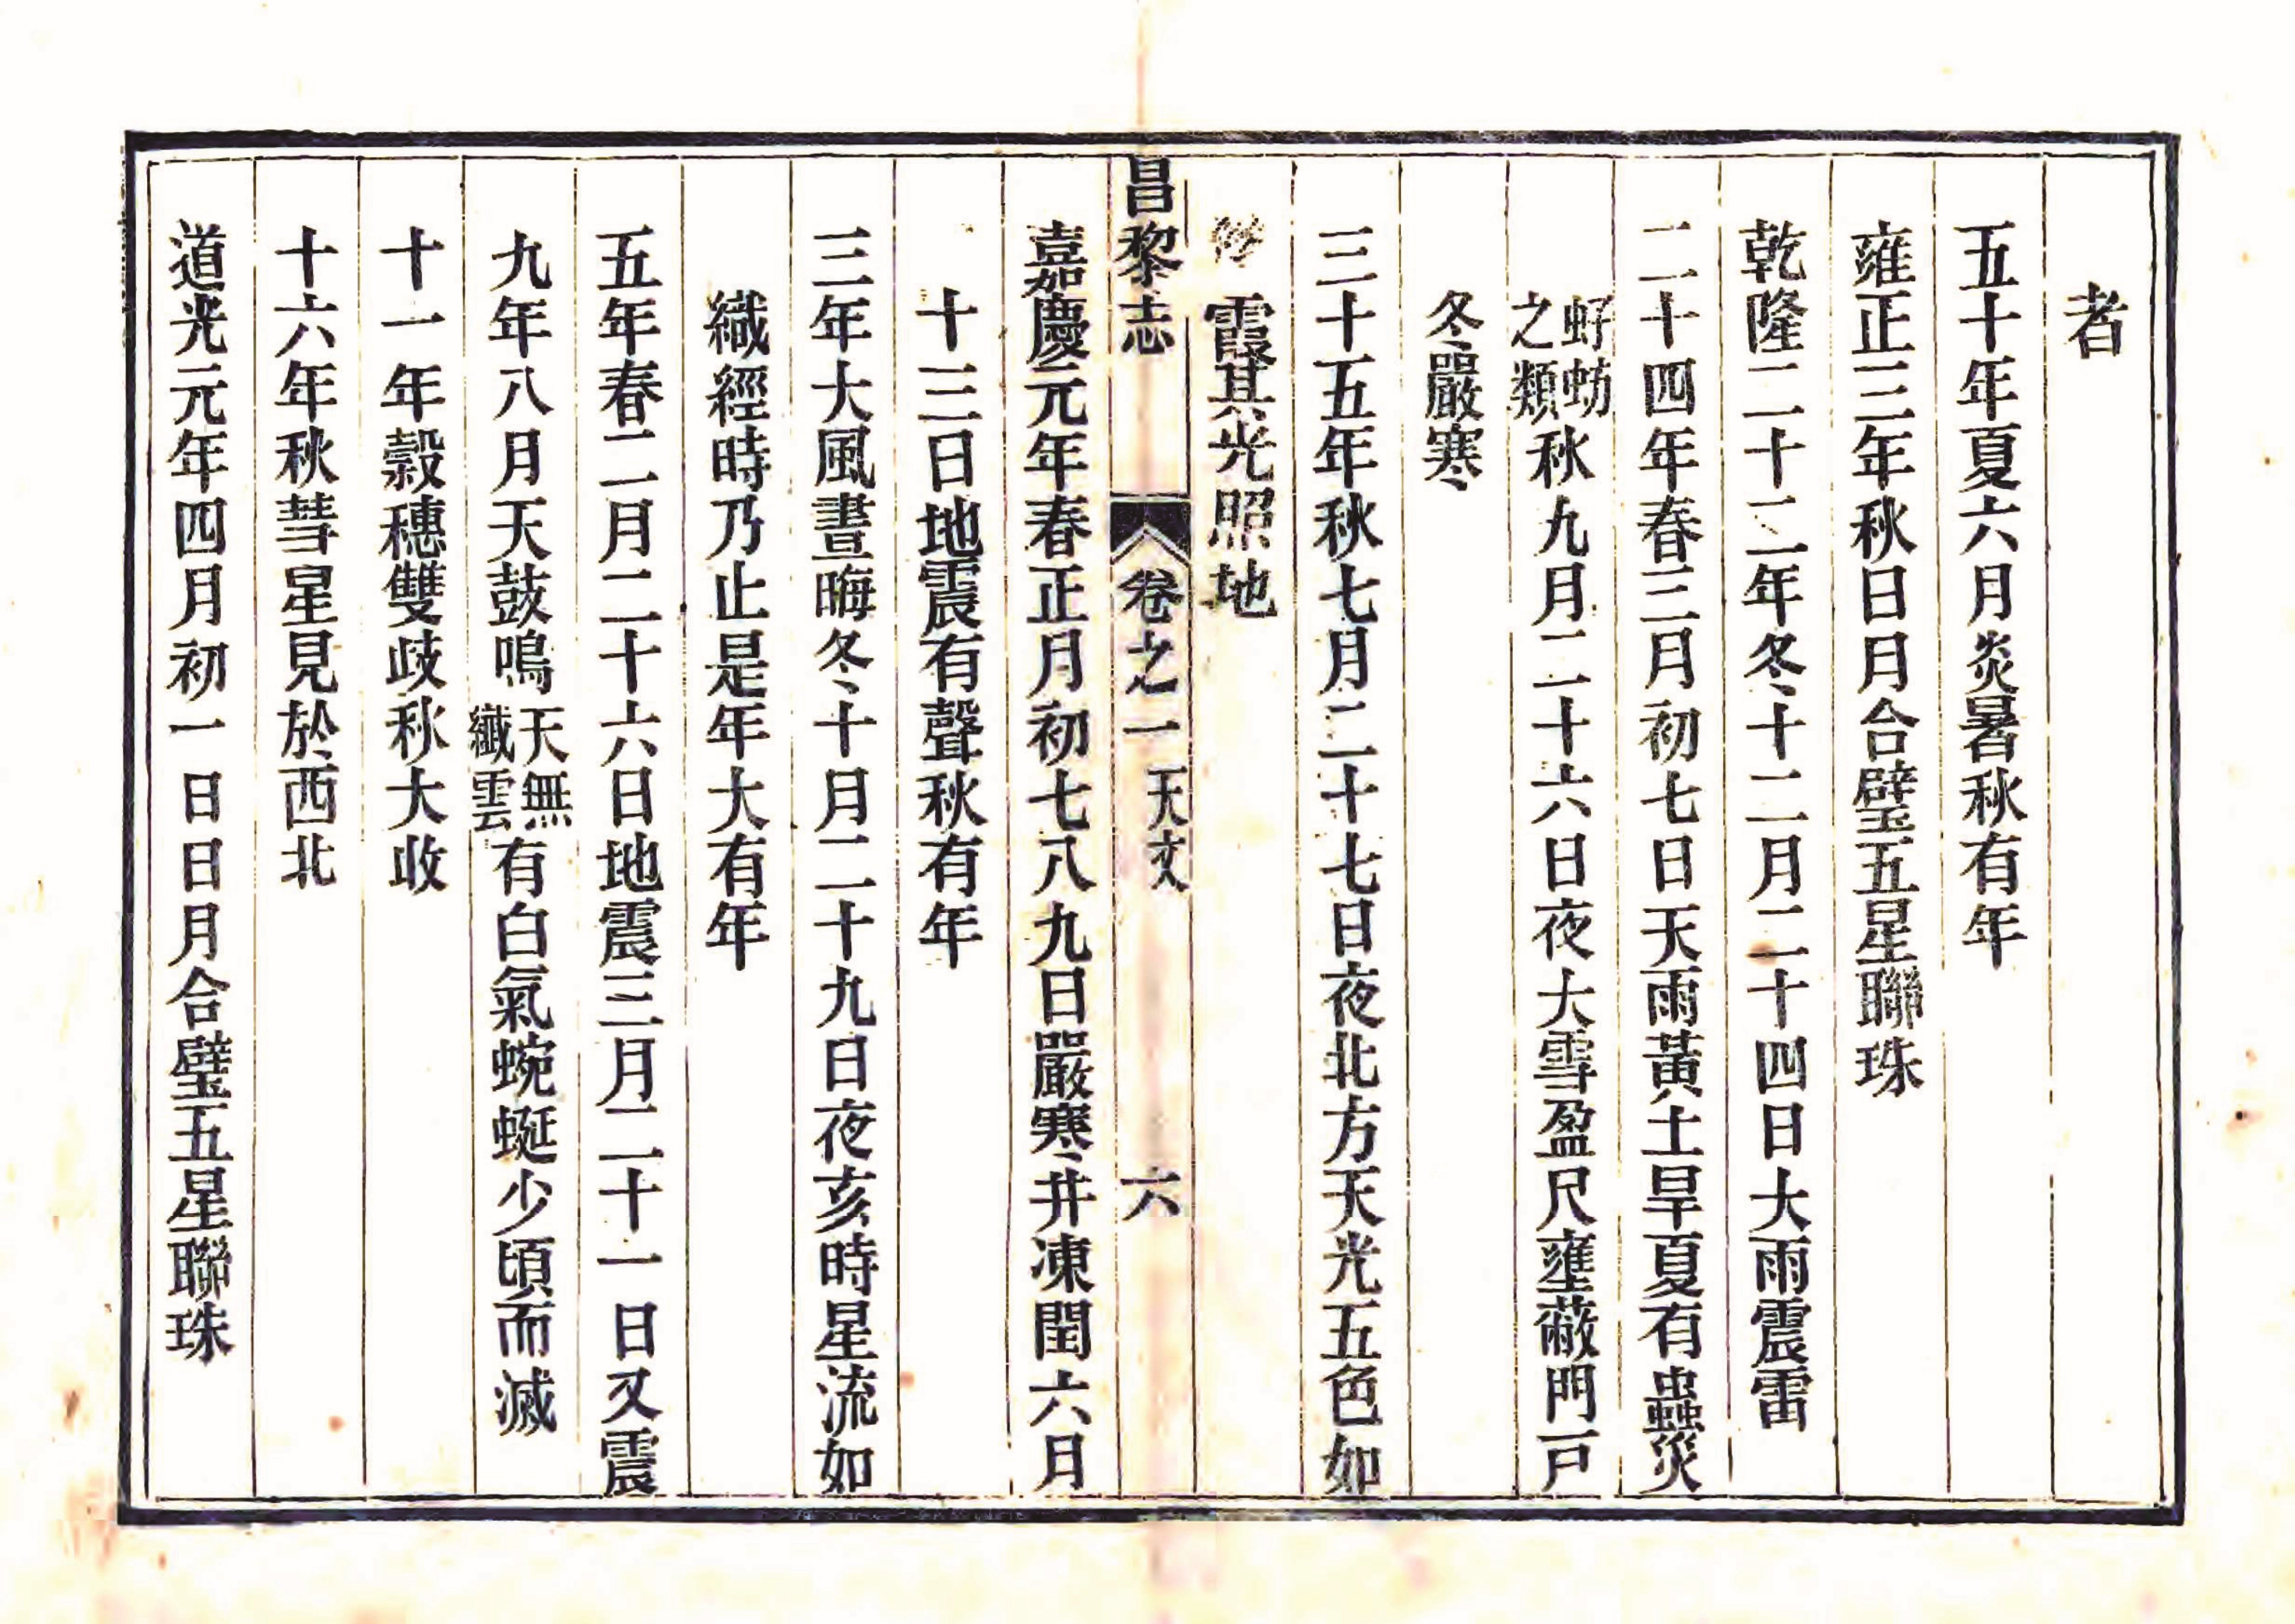 者
五十年夏六月炎暑秋有年
雍正三年秋日月合璧五星聯珠
乾隆二十二年冬十二月二十四日大雨震雷
二十四年春三月初七日天雨黃土旱夏有蟲災
虸蚄
之類
秋九月二十六日夜大雪盈尺壅蔽門戸
冬嚴寒
三十五年秋七月二十七日夜北方天光五色如
霞其光照地
昌黎志 卷之一 天文 六
嘉慶元年春正月初七八九日嚴寒井凍閏六月
十三日地震有聲秋有年
三年大風晝晦冬十月二十九日夜亥時星流如
織經時乃止是年大有年
五年春二月二十六日地震三月二十一日又震
九年八月天鼓鳴
天無
纖雲
有白氣蜿蜒少頃而滅
十一年穀穗雙歧秋大收
十六年秋彗星見於西北
道光元年四月初一日日月合璧五星聯珠